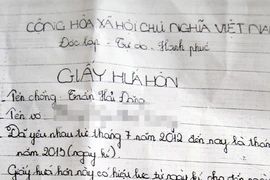 CỘNG HÒA XÃ HỘI CHỦ NGHĨA VIỆT NAM
Độc lập - Tự do - Hạnh phúc
GIẤY HỨA HÔN
- Tên chồng: Trần Hải Đăng
- Tên vợ:
- Đã yêu nhau từ tháng 7 năm 2012 đến nay là thán
năm 2015 (ngày kí).
Giấy hứa hôn này có hiệu lực từ ngày kí cho đến